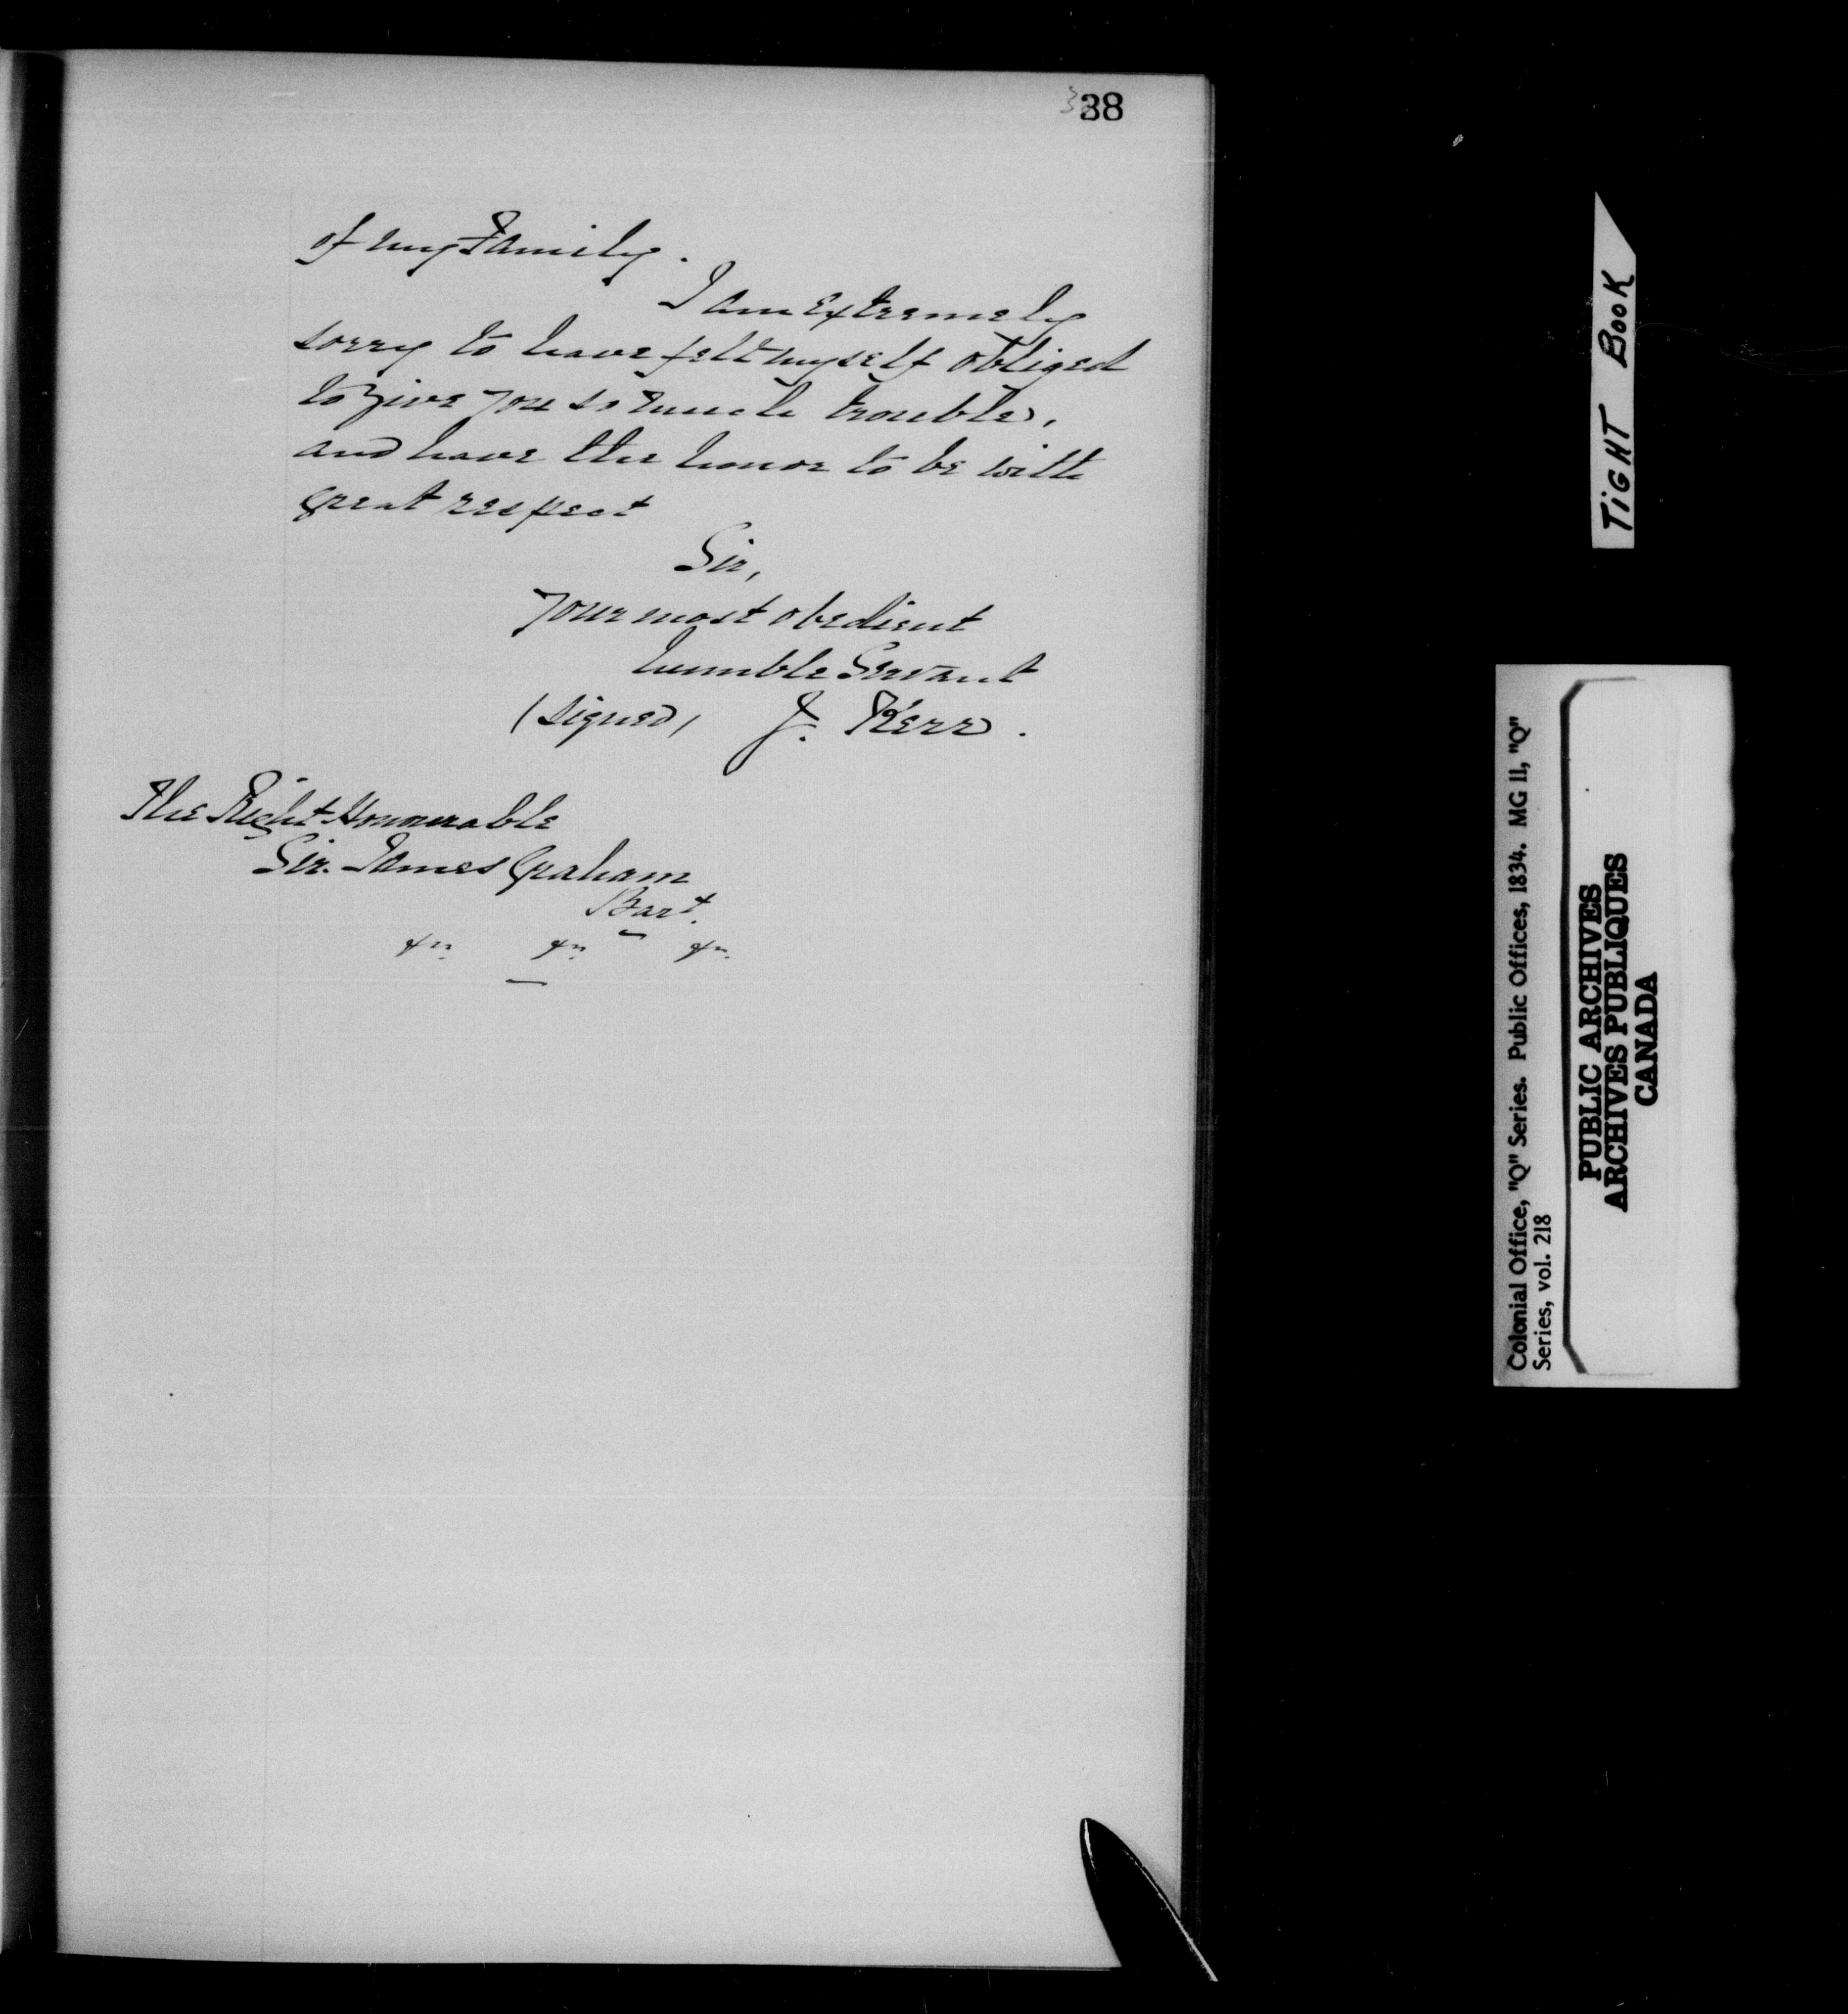 38
of my Family.
I am Extremely
sorry to have felt myself obliged
to give you so much trouble,
and have the honor to be with
great respect
Sir,
Your most obedient
humble Servant
(signed) J. Kerr.
The Right Honourable
Sir. James Graham
Bart.
&c. &c. &c.
TIGHT BOOK
Colonial Office, "Q" Series. Public Offices, 1834. MG 11, "Q"
Series, vol. 218
PUBLIC ARCHIVES
ARCHIVES PUBLIQUES
CANADA